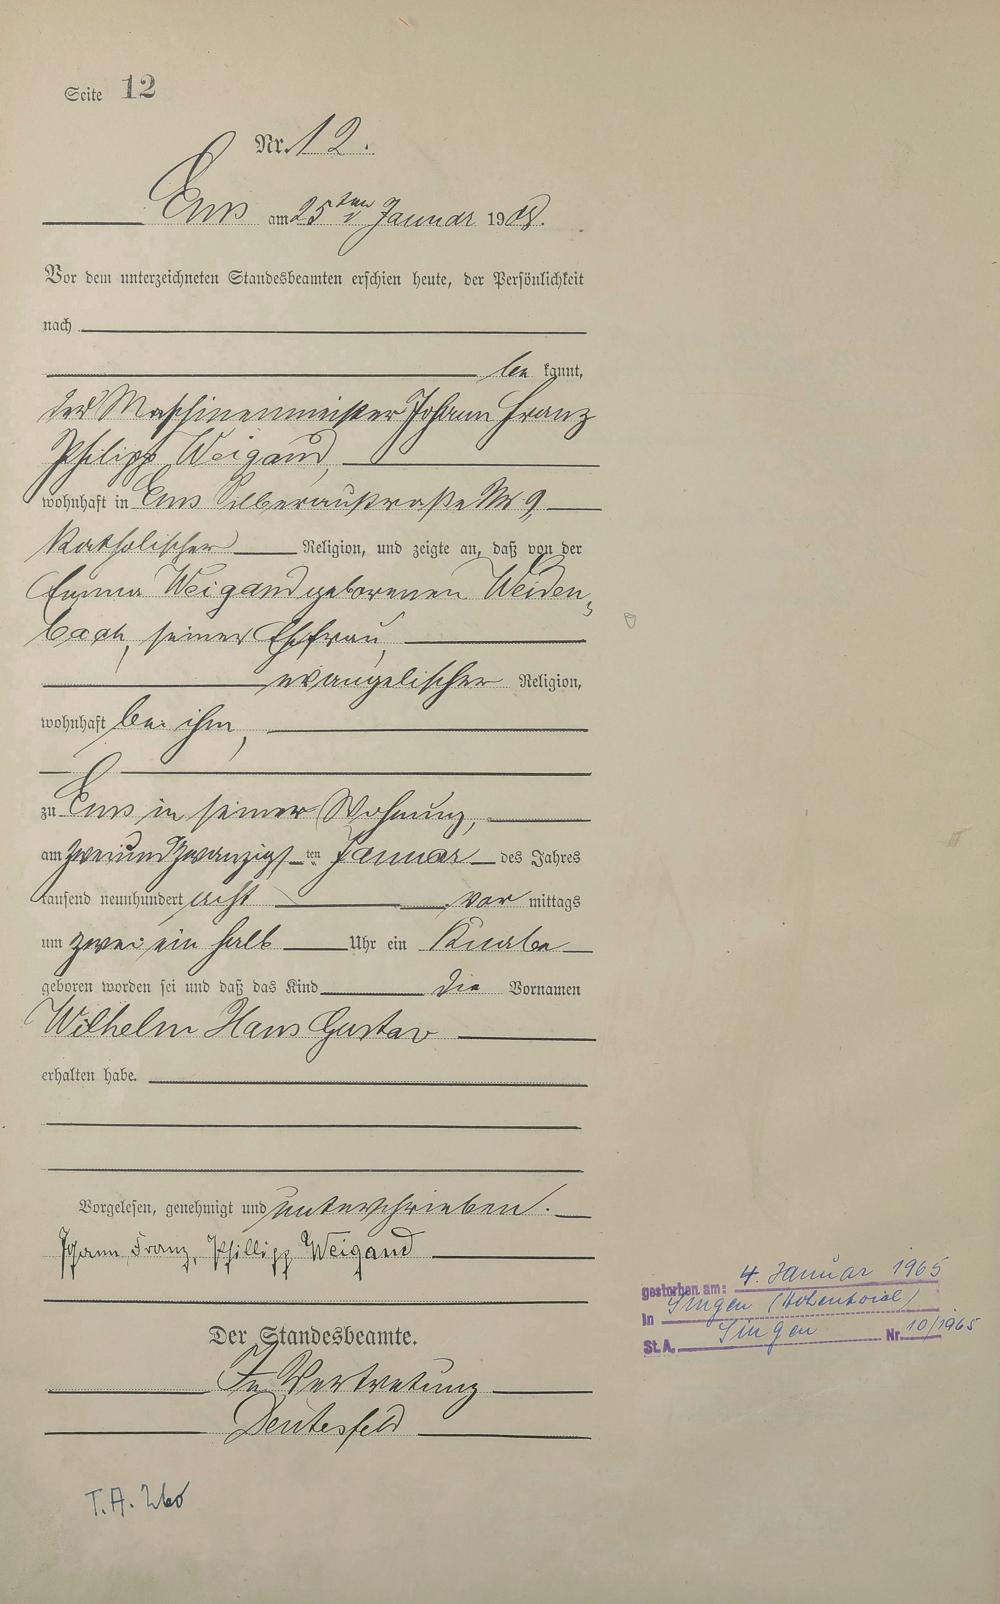 Seite 12
Nr. 12.
Ems am 25ten Januar 1908.
Vor dem unterzeichneten Standesbeamten erschien heute, der Persönlichkeit
nach
be kannt,
der Maschinenmeister Johann Franz
Philipp Weigand,
wohnhaft in Ems Silberaustraße Nr 9,
katholischer Religion, und zeigte an, daß von der
Emma Weigand geborenen Weiden-
bach, seiner Ehefrau,
evangelischer Religion,
wohnhaft bei ihm,
zu Ems in seiner Wohnung,
am zweiundzwanzigsten Januar des Jahres
tausend neunhundert acht vor mittags
um zwei ein halb Uhr ein Knabe
geboren worden sei und daß das Kind die Vornamen
Wilhelm Hans Gustav
erhalten habe.
Vorgelesen, genehmigt und unterschrieben.
Johann Franz, Phillipp Weigand
Der Standesbeamte.
In Vertretung
gestorben am: 4. Januar 1965
in Singen (Hohentwiel)
St.A. Singen Nr. 10/1965
T.A. 260